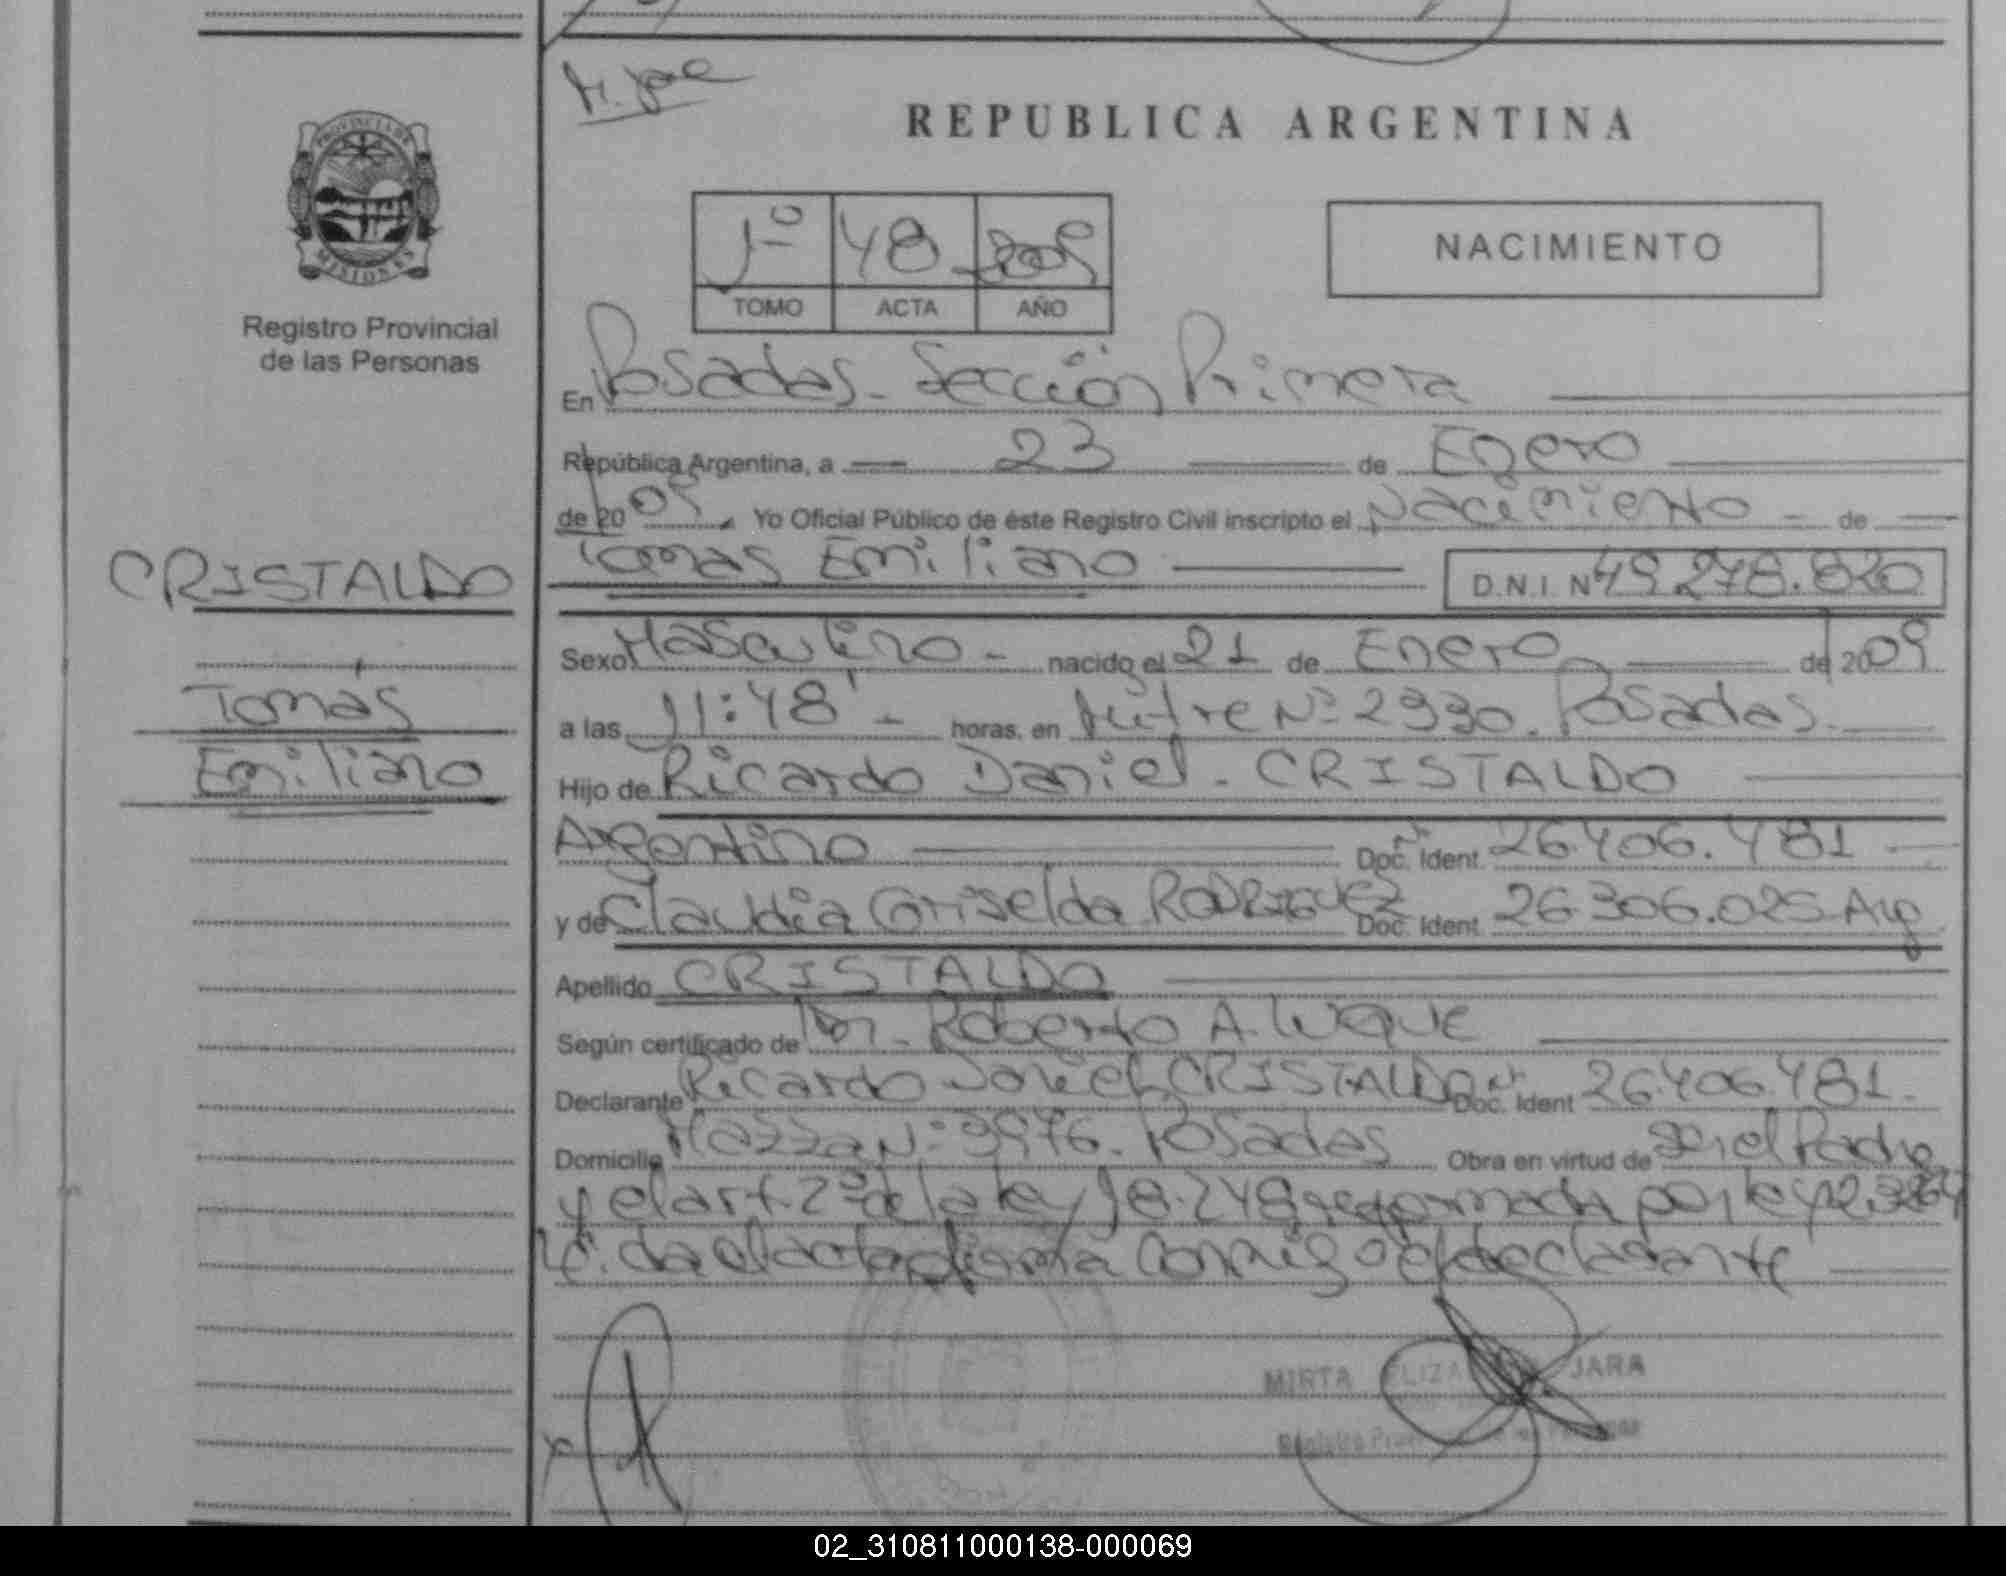 M. Jara
REPUBLICA ARGENTINA
PROVINCIA DE
MISIONES
Registro Provincial
de las Personas
1º 48 2009
TOMO ACTA AÑO
NACIMIENTO
En Posadas - Sección Primera
República Argentina, a 23 de Enero
de 2009 Yo Oficial Público de éste Registro Civil inscripto el Nacimiento - de
Tomas Emiliano D.N.I. Nº 49.278.820
CRISTALDO
Tomás
Emiliano
Sexo Masculino - nacido el 21 de Enero de 2009
a las 11:48' - horas, en Mitre Nº 2930. Posadas.
Hijo de Ricardo Daniel - CRISTALDO
Argentino Doc. Ident. 26.406.481
y de Claudia Griselda RODRIGUEZ Doc. Ident. 26.306.025 - Arg
Apellido CRISTALDO
Según certificado de Dr. Roberto A. Luque
Declarante Ricardo Daniel CRISTALDO Doc. Ident 26.406.481.
Domicilio Mazza Nº 3976. Posadas Obra en virtud de ser el Padre
y el art. 2º de la ley 18.248 reformada por ley
el acta firma conmigo el declarante
MIRTA JARA
02_310811000138-000069